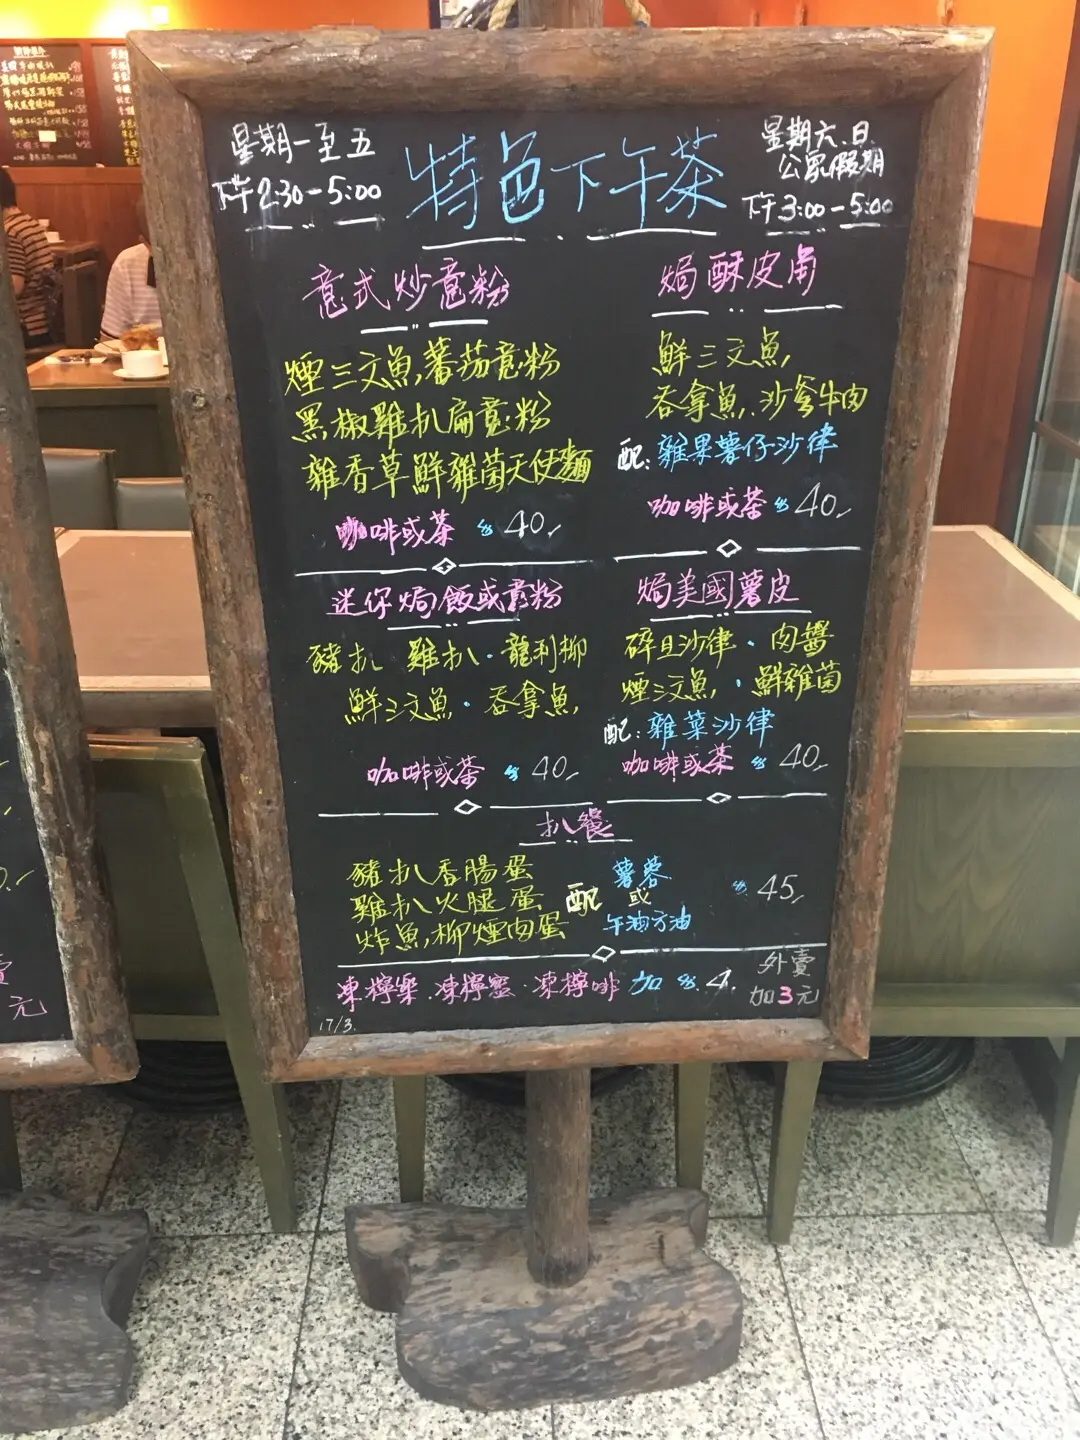 星期一至五
下午2:30-5:00
特色下午茶
星期六.日.
公眾假期
下午3:00-5:00
意式炒意粉
煙三文魚,蕃茄意粉
黑椒雞扒扁意粉
雜香草鮮雜菌天使麵
咖啡或茶 $40.
焗酥皮角
鮮三文魚,
吞拿魚.沙爹牛肉
配:雜果薯仔沙律
咖啡或茶 $40.
迷你焗飯或意粉
豬扒 雞扒·龍利柳
鮮三文魚·吞拿魚,
咖啡或茶 $40.
焗美國薯皮
碎旦沙律·肉醬
煙三文魚·鮮雜菌
配:雜菜沙律
咖啡或茶 $40.
扒餐
豬扒香腸蛋
雞扒火腿蛋
炸魚,柳煙肉蛋
配
薯蓉
或
牛油方油
$45.
凍檸樂.凍檸蜜·凍檸啡 加 $4.
外賣
加3元
17/3.
元